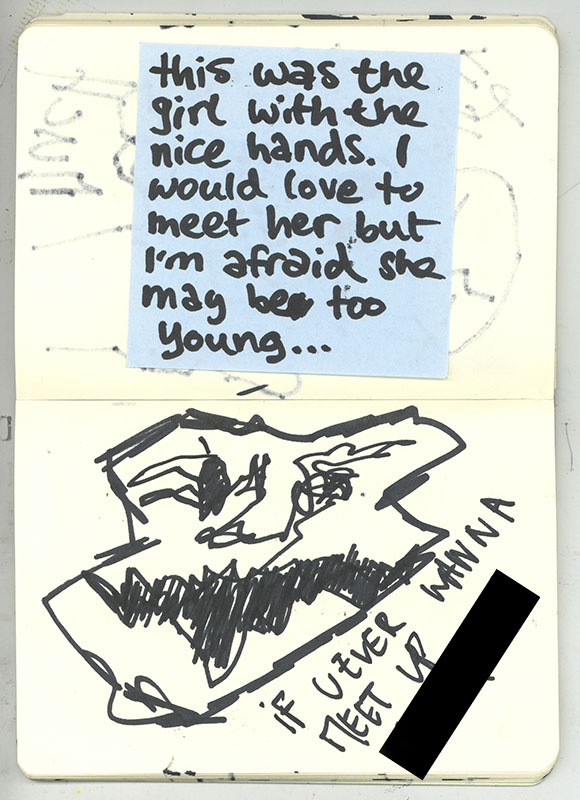 this was the
girl with the
nice hands. I
would love to
meet her but
I'm afraid she
may be too
young...
iF U EVER WANNA
MEET UP